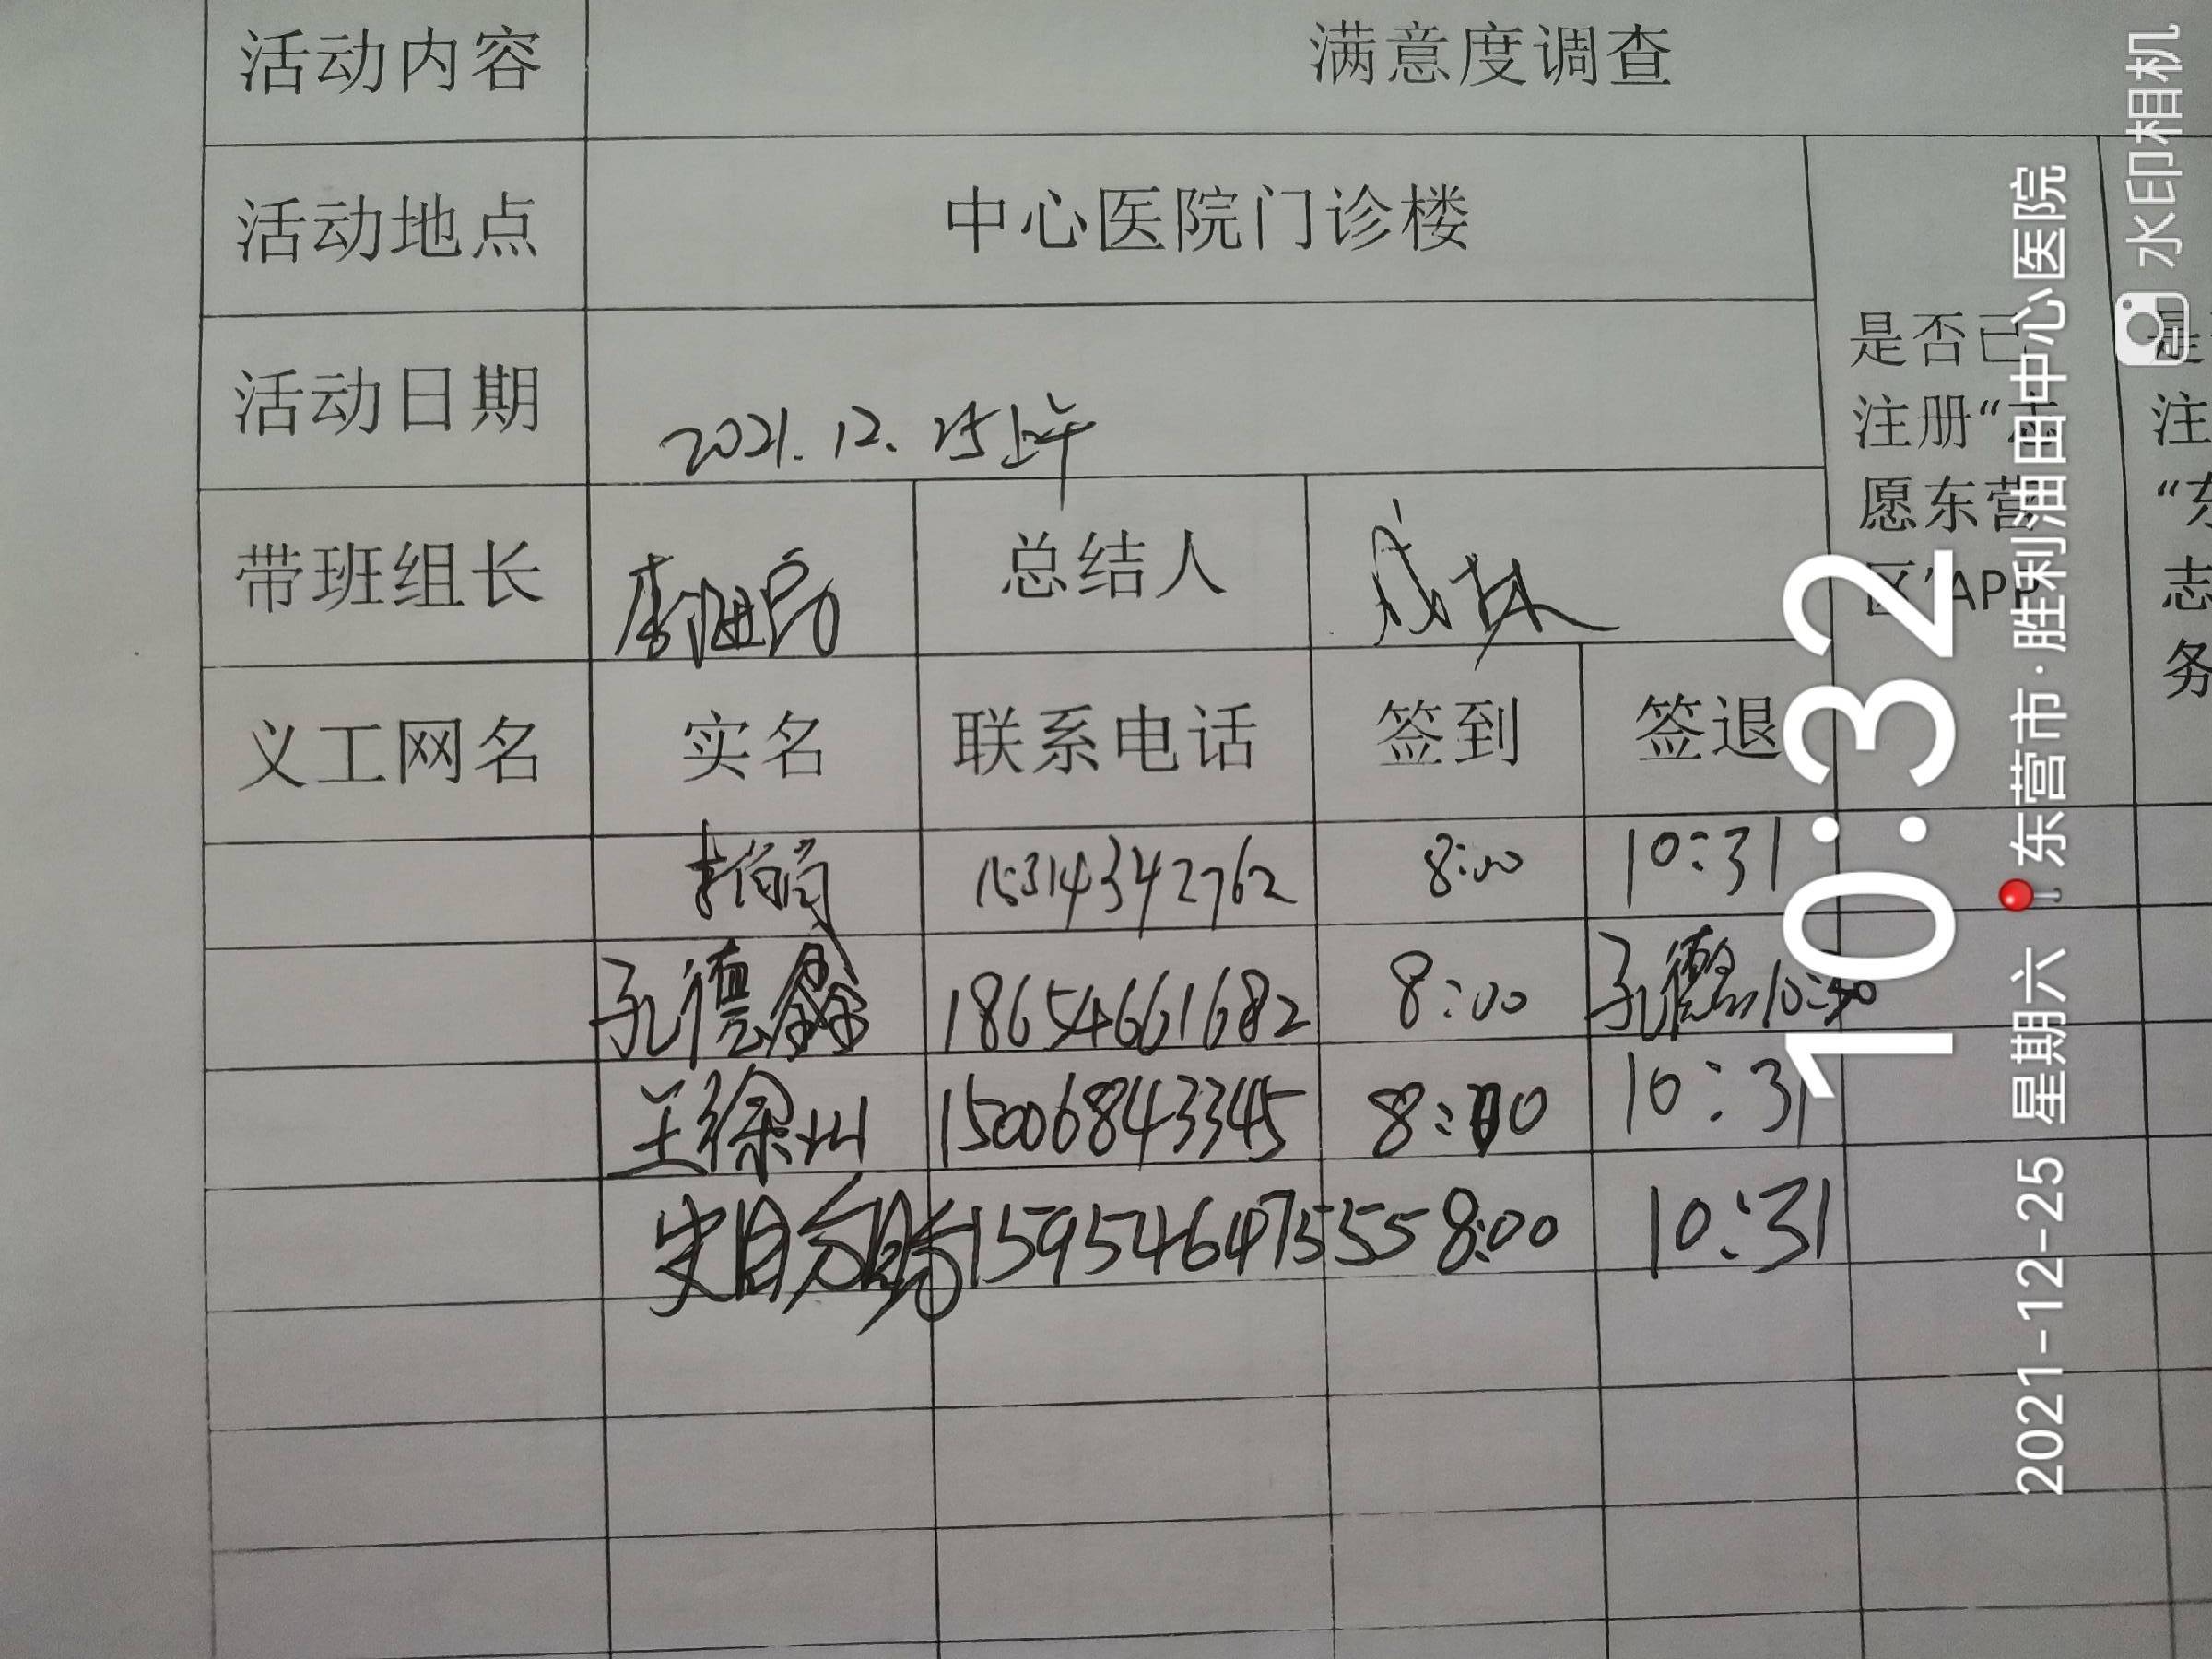 活动内容 满意度调查
活动地点 中心医院门诊楼
活动日期 2021.12.25上午
带班组长 总结人
是否已
注册“志
愿东营
区”APP
注
“东
志
务
义工网名 实名 联系电话 签到 签退
15314342762 8:00 10:31
孔德鑫 18654661682 8:00 孔德鑫
王徐州 15006843345 8:00 10:31
8:00 10:31
10:32
2021-12-25 星期六 东营市·胜利油田中心医院
水印相机